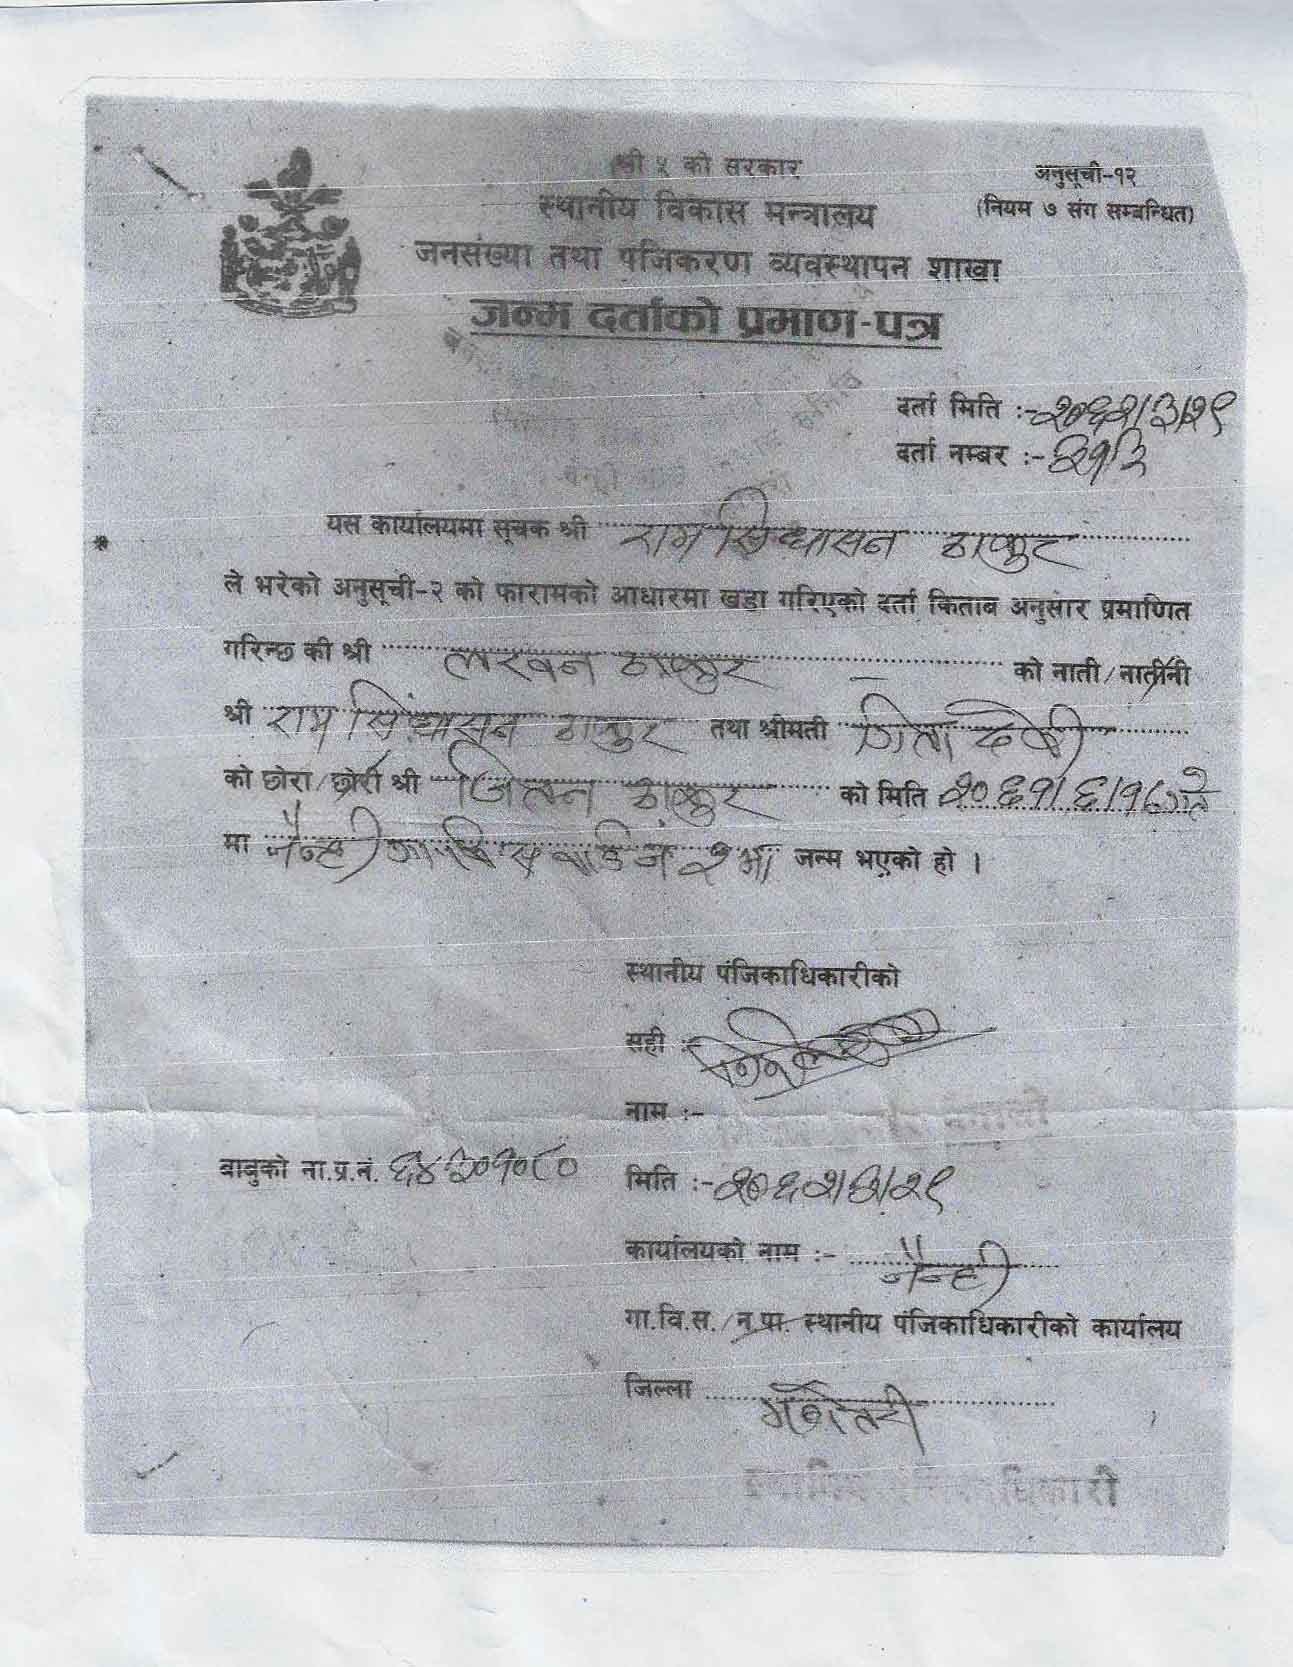 श्री ५ को सरकार
अनुसूची-१२
स्थानीय विकास मन्त्रालय
(नियम ७ संग सम्बन्धित)
जनसंख्या तथा पंजिकरण व्यवस्थापन शाखा
जन्म दर्ताको प्रमाण-पत्र
दर्ता मिति :- २०६२/३/२९
दर्ता नम्बर :-
यस कार्यालयमा सूचक श्री राम सिंघासन ठाकुर
ले भरेको अनुसूची-२ को फारामको आधारमा खडा गरिएको दर्ता किताब अनुसार प्रमाणित
गरिन्छ की श्री लखन ठाकुर को नाती/नातीनी
श्री राम सिंघासन ठाकुर तथा श्रीमती गिता देवी
को छोरा/छोरी श्री जितन ठाकुर को मिति २०६१/६/१८ गते
मा नैन्ही गा वि स वार्ड नं २ मा जन्म भएको हो ।
स्थानीय पंजिकाधिकारीको
सही :-
नाम :-
बाबुको ना.प्र.नं. ६४३०१०८०
मिति :- २०६२/३/२९
कार्यालयको नाम :- नैन्ही
गा.वि.स./न.पा. स्थानीय पंजिकाधिकारीको कार्यालय
जिल्ला महोत्तरी